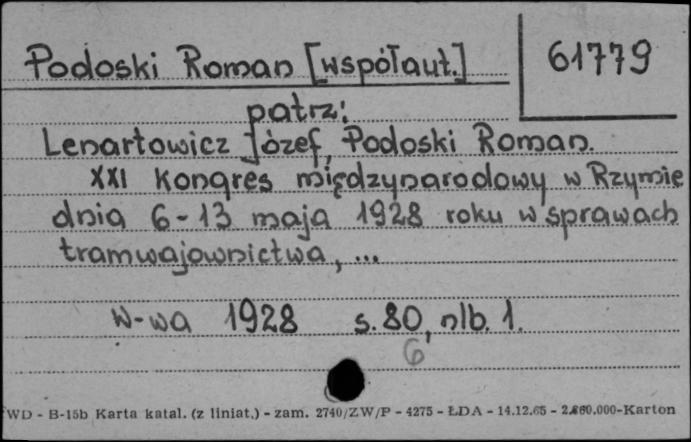 Podoski Roman [współaut.]
61779
patrz:
Lenartowicz Józef, Podoski Roman.
XXI Kongres międzynarodowy w Rzymie
dnia 6-13 maja 1928 roku w sprawach
tramwajownictwa, ...
W-wa 1928 s. 80, nlb. 1.
6
WD - B-15b Karta katal. (z liniat.) - zam. 2740/ZW/P - 4275 - ŁDA - 14.12.65 - 2.860.000-Karton